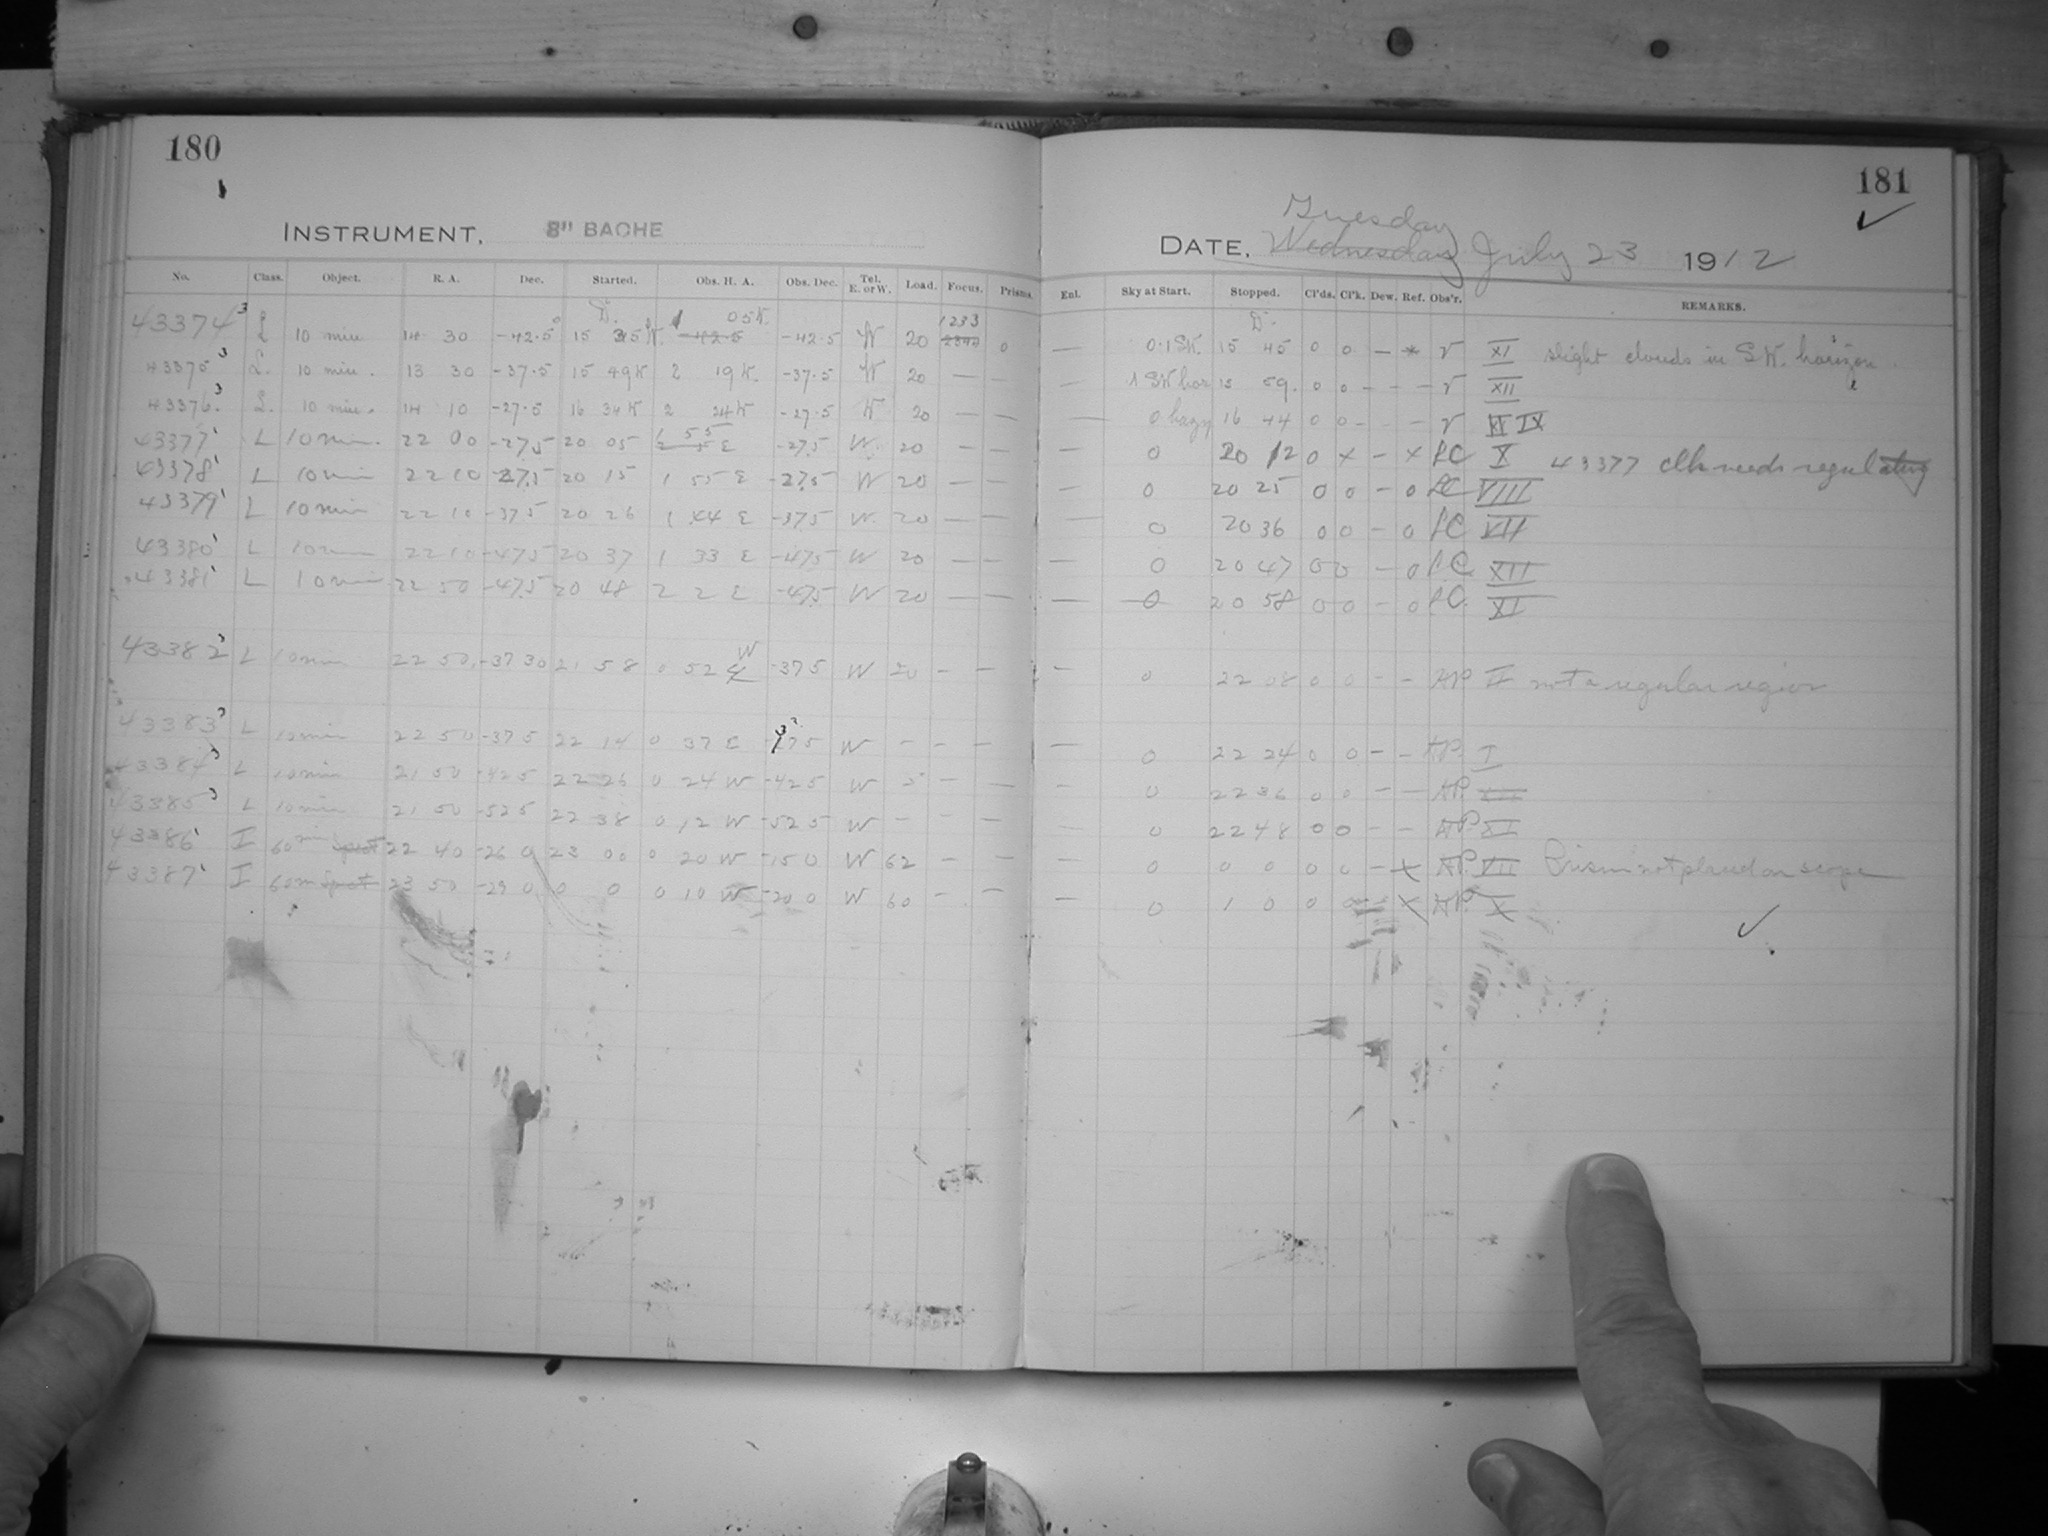 180
INSTRUMENT, 8" BACHE
No. Class. Object. R. A. Dec. Started. Obs. H. A. Obs. Dec. Tel. E. or W. Load. Focus. Prisms.
43374 3 L 10 min 14 30 -42.5 15 35 W. 1 05 W. -42.5 W 20 1233 0
43375 3 L. 10 min. 13 30 -37.5 15 49 W 2 19 W. -37.5 W 20 — —
43376 3 L. 10 min. 14 10 -27.5 16 34 W 2 24 W -27.5 W 20 — —
43377 1 L 10 min. 22 00 -27.5 20 05 1 55 E -27.5 W. 20 — —
43378 1 L 10 min 22 10 -27.5 20 15 1 55 E -27.5 W 20 — —
43379 1 L 10 min 22 10 -37.5 20 26 1 44 E -37.5 W. 20 — —
43380 1 L 10 min 22 10 -47.5 20 37 1 33 E -47.5 W 20 — —
43381 1 L 10 min 22 50 -47.5 20 48 2 2 E -47.5 W 20 — —
43382 3 L 10 min 22 50 -37 30 21 58 0 52 W -37.5 W 20 — —
43383 3 L 10 min 22 50 -37.5 22 14 0 37 E W — — —
43384 3 L 10 min 21 50 -42.5 22 26 0 24 W -42.5 W — —
43385 3 L 10 min 21 50 -52.5 22 38 0 12 W -52.5 W — — —
43386 1 I 60 min Spect 22 40 -26 0 23 00 0 20 W -15 0 W 62 — —
43387 1 I 60 m Spect 23 50 -29 0 0 0 0 10 W -20 0 W 60 — —
181
Tuesday
DATE, Wednesday July 23 1912
Enl. Sky at Start. Stopped. Cl'ds. Cl'k. Dew. Ref. Obs'r. REMARKS.
— 0.1 SW. 15 45 0 0 — * V XI slight clouds in S.W. horizon.
— .1 SW hor 15 59. 0 0 — — V XII
— 0 hazy 16 44 0 0 — — V IX
— 0 20 12 0 x — x LC X 43377 clk needs regulating
— 0 20 25 0 0 — 0 LC VIII
— 0 20 36 0 0 — 0 LC XII
— 0 20 47 0 0 — 0 LC XII
— 0 20 58 0 0 — 0 LC. XI
— 0 22 08 0 0 — — AP II not a regular region
— 0 22 24 0 0 — — AP. I
— 0 22 36 0 0 — — AP. XII
— 0 22 48 0 0 — — AP. XI
— 0 0 0 0 0 — x AP. VII Prism not placed on scope
— 0 1 0 0 0 — x AP. X